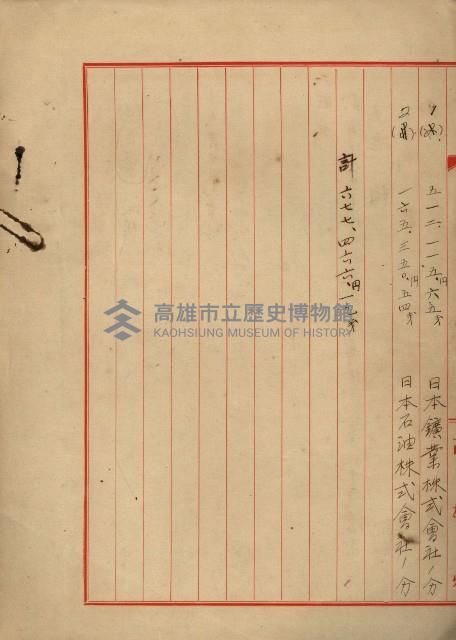 1 五一二.一一五円.六五才 日本鑛業株式會社ノ分
2 一六五.三五〇円.五四才 日本石油株式會社ノ分
計 六七七、四六六円一九才
高雄市立歷史博物館
KAOHSIUNG MUSEUM OF HISTORY